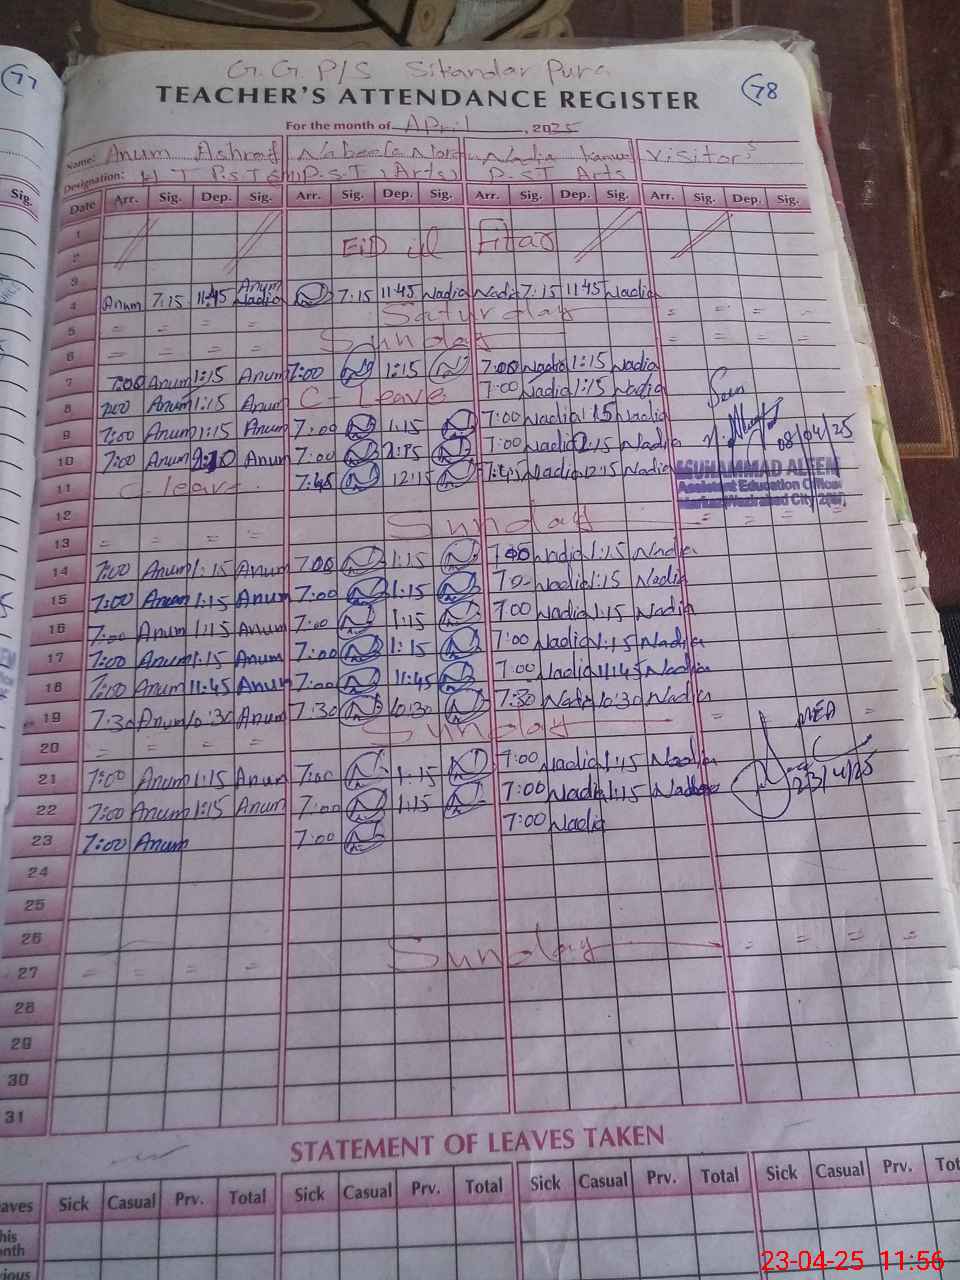 77
G.G P/S Sikandar Pura
78
TEACHER'S ATTENDANCE REGISTER
For the month of April, 2025
Name: Anum Ashraf Nabeela Nadia Kanwal Visitor's
Designation: P.S.T (Arts) P.ST Arts
Sig. Date Arr. Sig. Dep. Sig. Arr. Sig. Dep. Sig. Arr. Sig. Dep. Sig. Arr. Sig. Dep. Sig.
1
2 EiD ul Fitar
3
4 Anum 7:15 11:45 Anum Nadia 7:15 11:45 Nadia Nadia 7:15 11:45 Nadia
5 = = = = Saturday = = = -
6 = = = = Sunday = = = =
7 7:00 Anum 1:15 Anum 7:00 1:15 7:00 Nadia 1:15 Nadia
8 7:00 Anum 1:15 Anum C- Leave 7:00 Nadia 1:15 Nadia Seen
9 7:00 Anum 1:15 Anum 7:00 1:15 7:00 Nadia 1:15 Nadia 08/04/25
10 7:00 Anum Anum 7:00 7:00 Nadia 2:15 Nadia
MUHAMMAD ALEEM
Assistant Education Officer
Markaz Wazirabad City 2(W)
11 C-leave. 7:45 12:15 7:45 Nadia 12:15 Nadia
12
13 = = = = Sunday = = = =
14 7:00 Anum 1:15 Anum 7:00 1:15 7:00 Nadia 1:15 Nadia
15 7:00 Anum 1:15 Anum 7:00 1:15 70- Nadia 1:15 Nadia
16 7:00 Anum 1:15 Anum 7:00 1:15 7:00 Nadia 1:15 Nadia
17 7:00 Anum 1:15 Anum 7:00 1:15 7:00 Nadia 1:15 Nadia
18 7:00 Anum 11:45 Anum 7:00 11:45 7:00 Nadia 11:45 Nadia
19 7:30 Anum 10:30 Anum 7:30 10:30 7:30 Nadia 10:30 Nadia
20 = = = = Sunday = =
21 7:00 Anum 1:15 Anum 7:00 1:15 7:00 Nadia 1:15 Nadia
22 7:00 Anum 1:15 Anum 7:00 1:15 7:00 Nadia 1:15 23/4/25
23 7:00 Anum 7:00 7:00 Nadia
24
25
26
27 = = = = Sunday = = = =
28
29
30
31
STATEMENT OF LEAVES TAKEN
Sick Casual Prv. Total Sick Casual Prv. Total Sick Casual Prv. Total Sick Casual Prv.
23-04-25 11:56